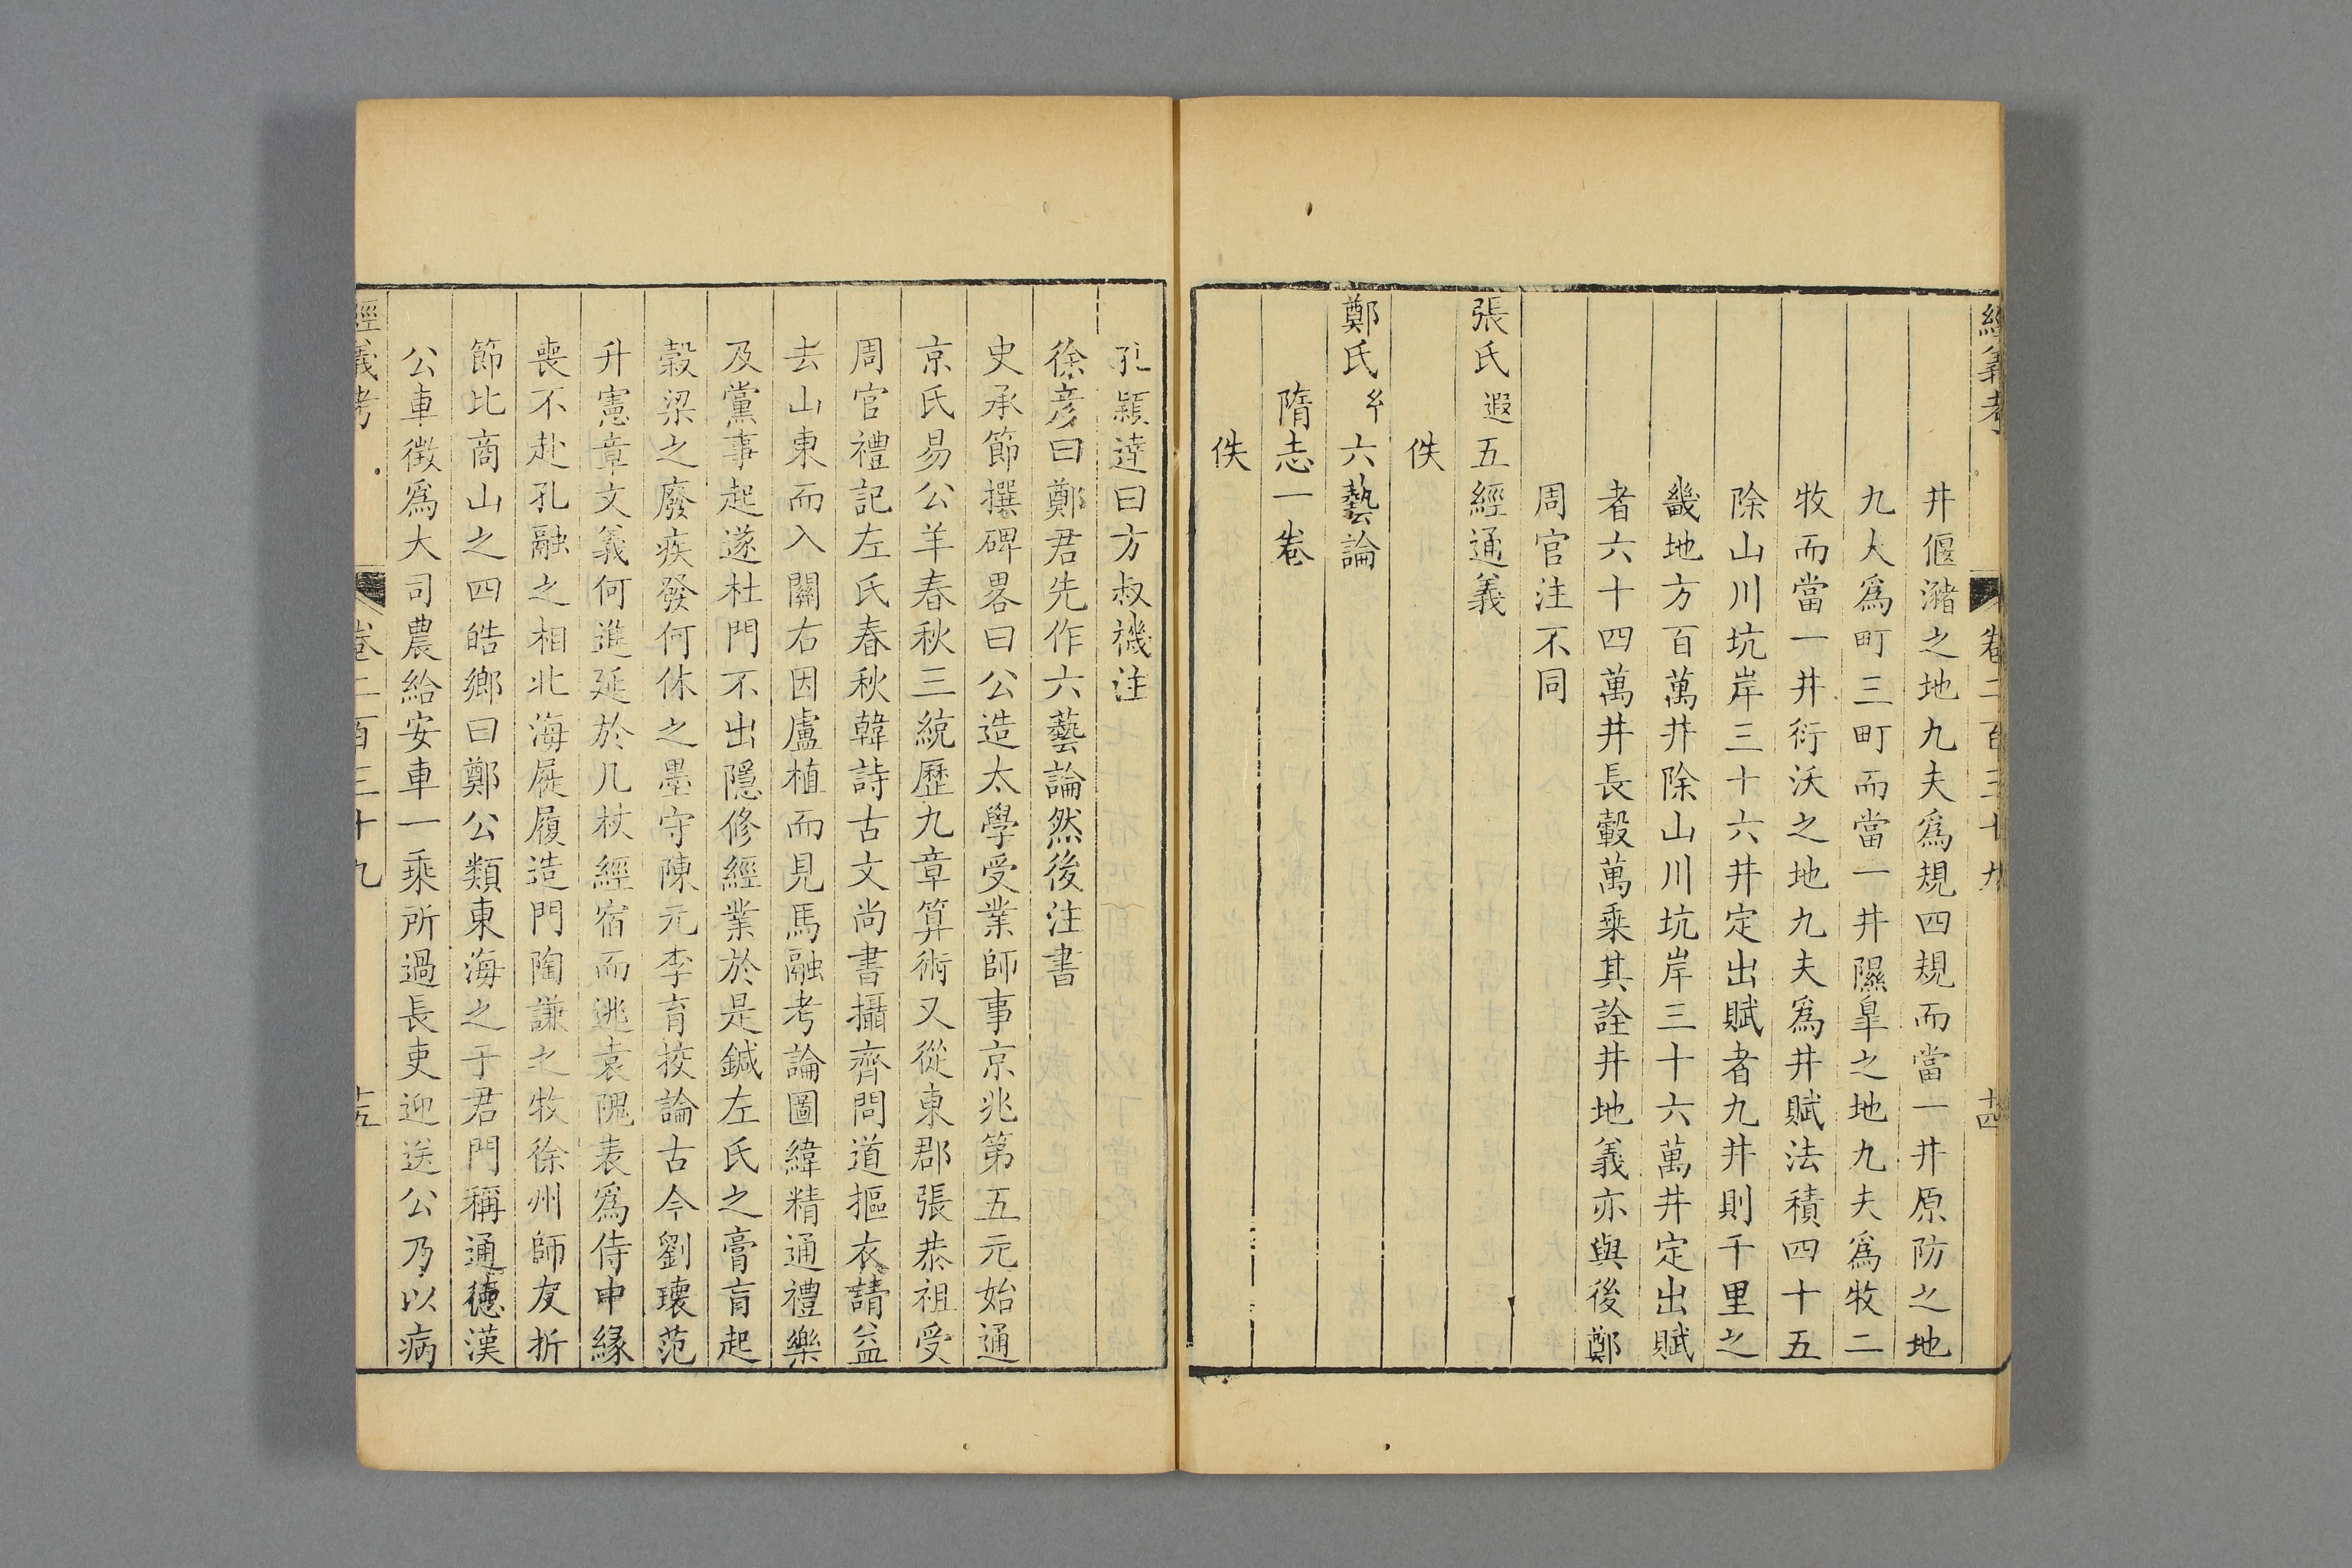 經義考 卷二百三十九 十四
井偃瀦之地九夫爲規四規而當一井原防之地
九夫爲町三町而當一井隰臯之地九夫爲牧二
牧而當一井衍沃之地九夫爲井賦法積四十五
除山川坑岸三十六井定出賦者九井則千里之
畿地方百萬井除山川坑岸三十六萬井定出賦
者六十四萬井長轂萬乘其詮井地義亦與後鄭
周官注不同
張氏遐五經通義
佚
鄭氏 六藝論
隋志一卷
佚
孔穎達曰方叔機注
徐彦曰鄭君先作六藝論然後注書
史承節撰碑畧曰公造太學受業師事京兆第五元始通
京氏易公羊春秋三統歷九章算術又從東郡張恭祖受
周官禮記左氏春秋韓詩古文尚書攝齊問道摳衣請益
去山東而入關右因盧植而見馬融考論圖緯精通禮樂
及黨事起遂杜門不出隱修經業於是鍼左氏之膏肓起
穀梁之廢疾發何休之墨守陳元李育挍論古今劉瓌范
升憲章文義何進延於几杖經宿而逃袁隗表爲侍中緣
喪不赴孔融之相北海屣履造門陶謙之牧徐州師友折
節比商山之四皓鄉曰鄭公類東海之于君門稱通德漢
公車徴爲大司農給安車一乘所過長吏迎送公乃以病
經義考 卷二百三十九 十五